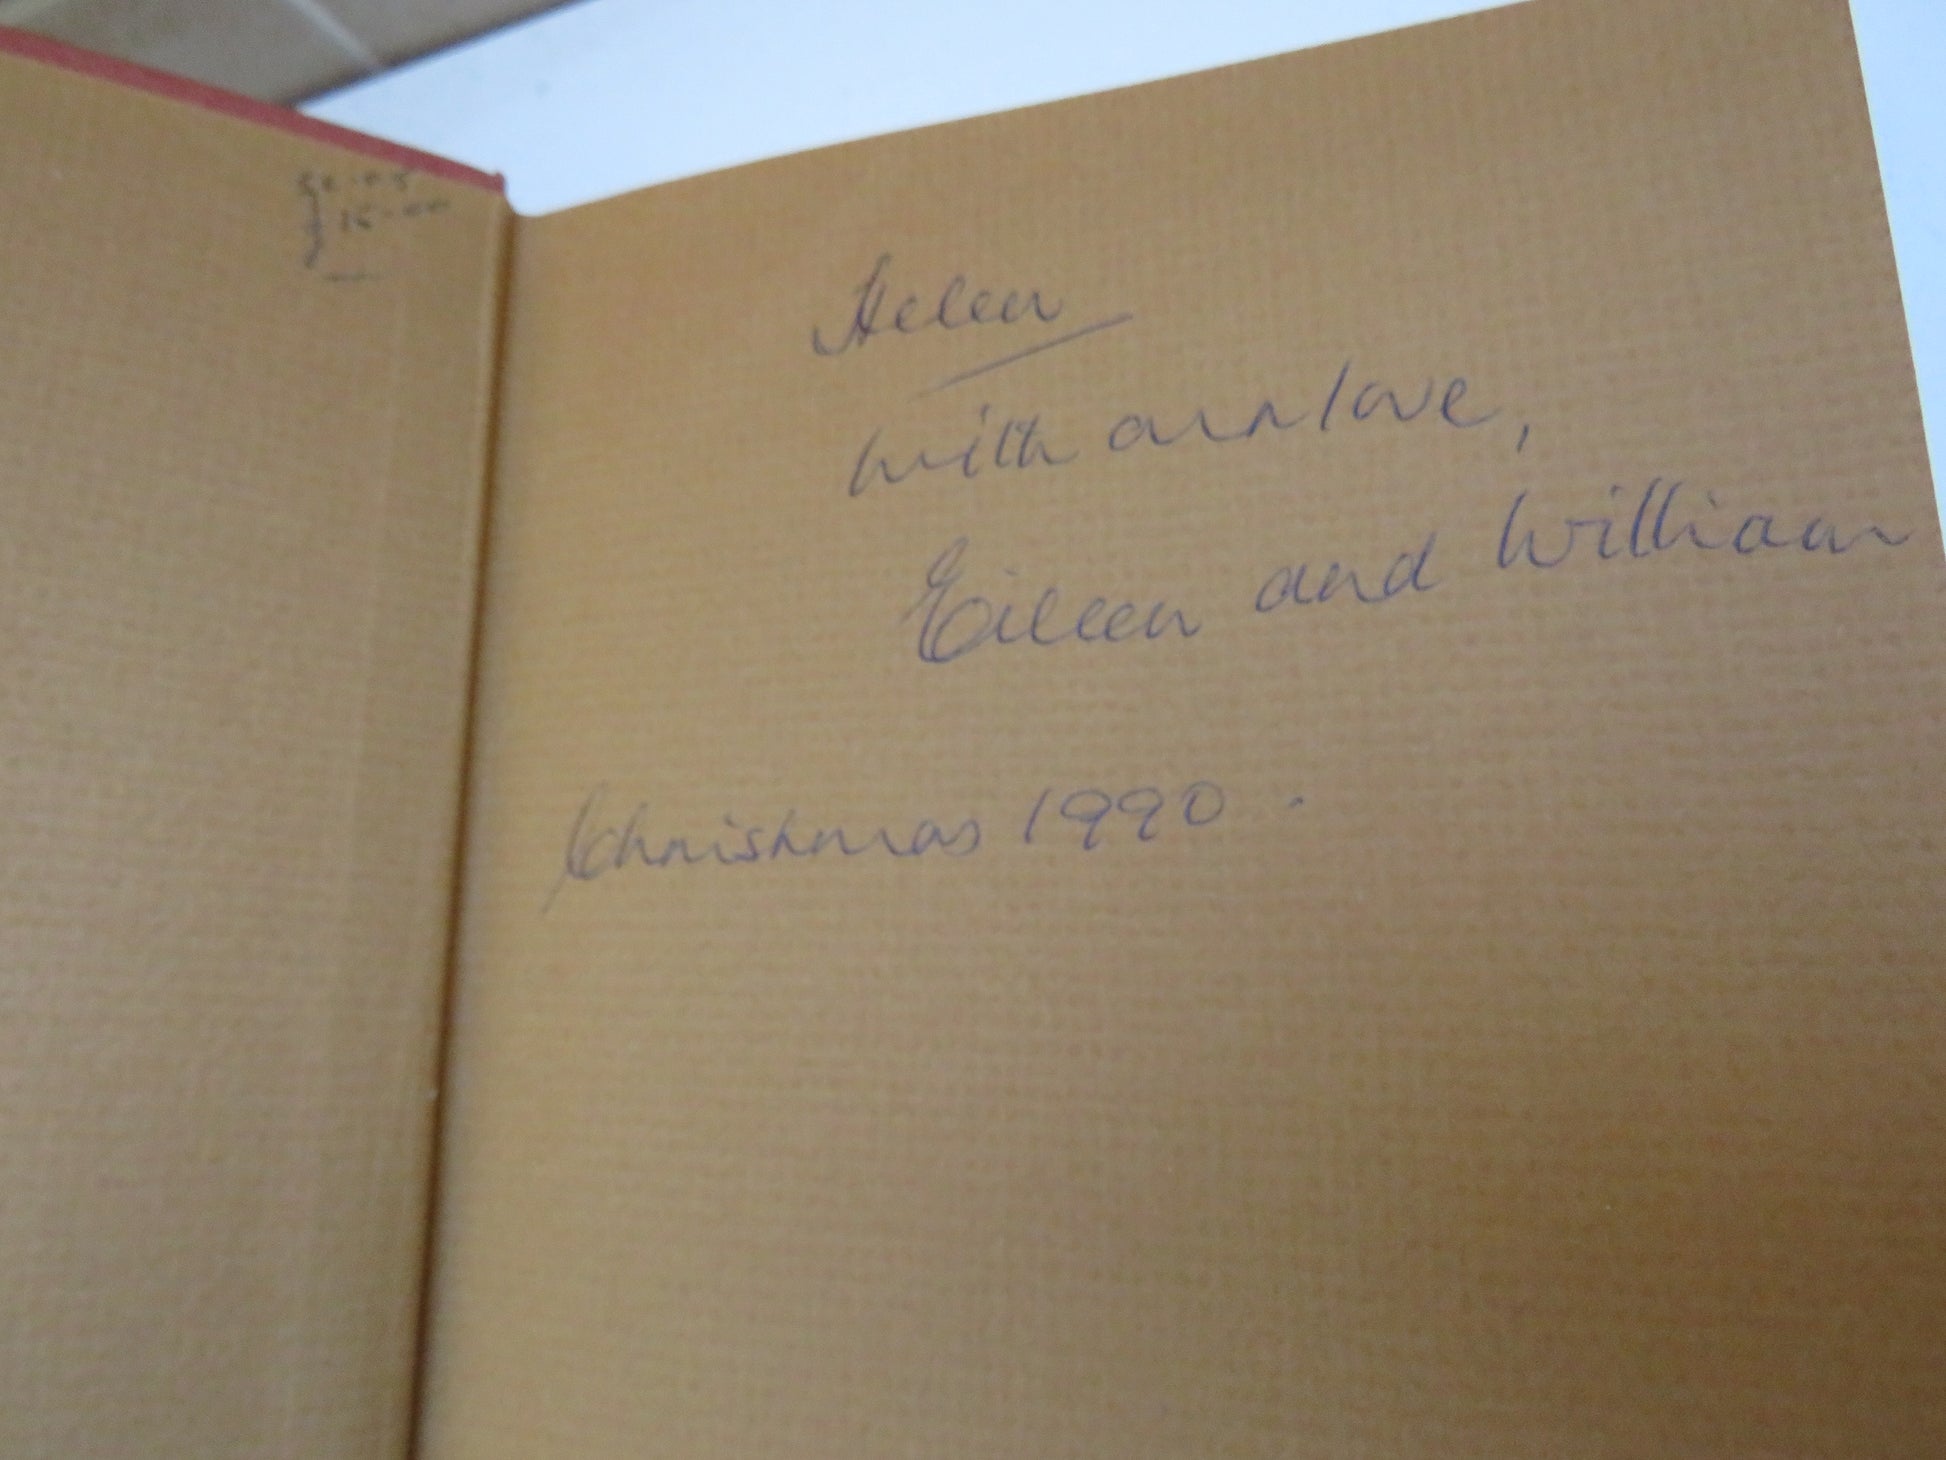 Helen
with our love,
Eileen and William
Christmas 1990.